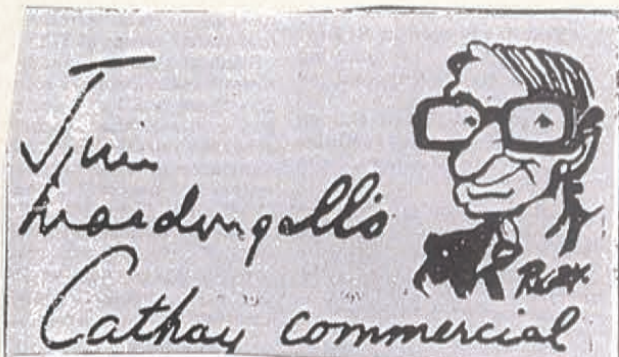 Jim
Macdougall's
Cathay commercial